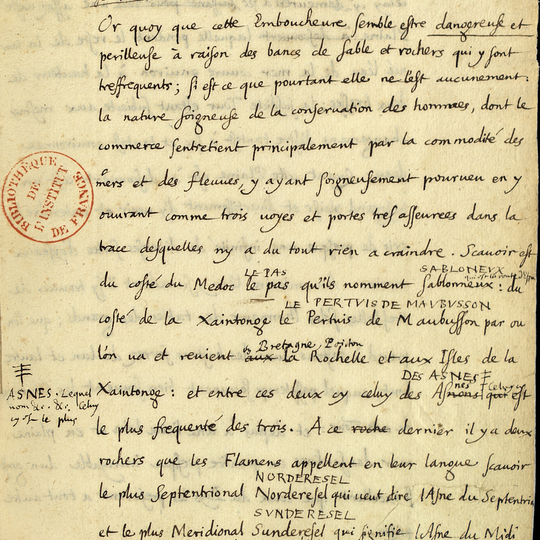 Or quoy que cette Emboucheure semble estre dangereuse et
perilleuse à raison des bancs de sable et rochers qui y sont
tresfrequents; si est ce que pourtant elle ne l'est aucunement:
la nature soigneuse de la conservation des hommes, dont le
commerce s'entretient principalement par la commodité des
mers et des fleuves, y ayant soigneusement pourueu en y
BIBLIOTHÈQUE DE L'INSTITUT DE FRANCE
ouvrant comme trois voyes et portes tres asseurees dans la
trace desquelles n'y a du tout rien a craindre. Scavoir est
LE PAS SABLONEUX
du costé du Medoc le pas qu'ils nomment sablonneux: du
LE PERTUIS DE MAUBUSSON
costé de la Xaintonge le Pertuis de Maubusson par ou
Bretagne,
l'on va et revient aux la Rochelle et aux Isles de la
DES ASNES
ASNES. Lequel
Xaintonge: et entre ces deux cy celuy des Asnes est
celuy
cy est le plus
le plus frequenté des trois. A ce roche dernier il y a deux
rochers que les Flamens appellent en leur langue scavoir
NORDERESEL
le plus Septentrional Norderesel qui veut dire l'Asne du Septentrio
SUNDERESEL
et le plus Meridional Sunderesel qui signifie l'Asne du Midi